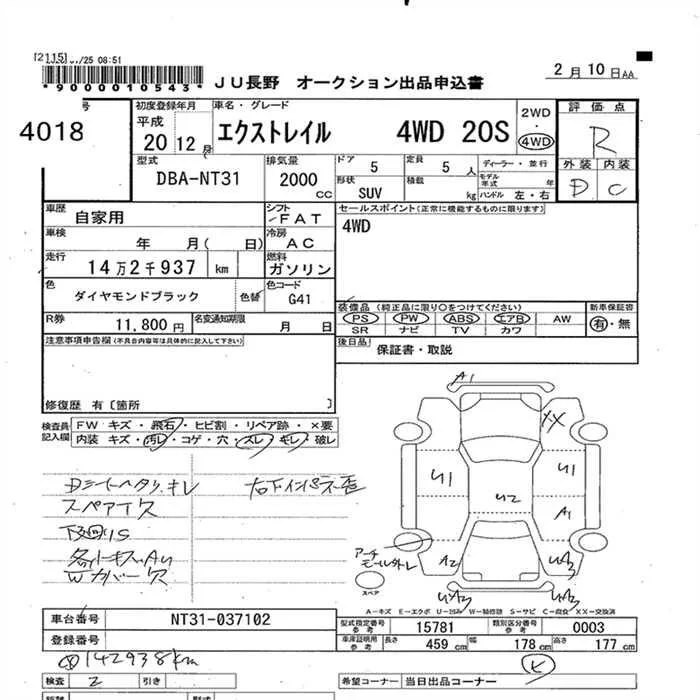 [2115]
/25 08:51
*9000010543*
JU長野 オークション出品申込書
2月10日AA
号
4018
初度登録年月
平成
20 12月
車名・グレード
エクストレイル 4WD 20S
2WD
・
4WD
評価点
R
外装 内装
D C
型式
DBA-NT31
排気量
2000 CC
ドア 5
定員 5人
ディーラー・並行
モデル年式 年
形状 SUV
積載 kg
ハンドル 左・右
車歴 自家用
シフト FAT
セールスポイント(正常に機能するものに限ります)
4WD
車検 年 月( 日)
冷房 AC
走行 14万2千937 km
燃料 ガソリン
色 ダイヤモンドブラック 色替
色コード G41
装備品(純正品に限り○をつけてください)
新車保証書
PS PW ABS エアB AW
有・無
SR ナビ TV カワ
R券 11,800円
名変通知期限 月 日
後日品
保証書・取説
注意事項申告欄(不具合内容等は具体的に記入して下さい)
修復歴 有〔箇所 〕
検査員記入欄
FW キズ・飛石・ヒビ割・リペア跡・×要
内装 キズ・汚レ・コゲ・穴・スレ・キレ・破レ
A1
U1 U1
U2
A1
A2
Dシートヘタリ、キレ
スペアイ欠
Wカバー欠
アーチモール外レ
スペア
A-キズ E-エクボ U-凹ミ W-補修跡 S-サビ C-腐食 XX-交換済
車台番号 NT31-037102
登録番号
型式指定番号 参考 15781
類別区分番号 参考 0003
車庫証明用 参考 長さ 459cm 幅 178cm 高さ 177cm
142938km
検査 2 引き
希望コーナー 当日出品コーナー
K